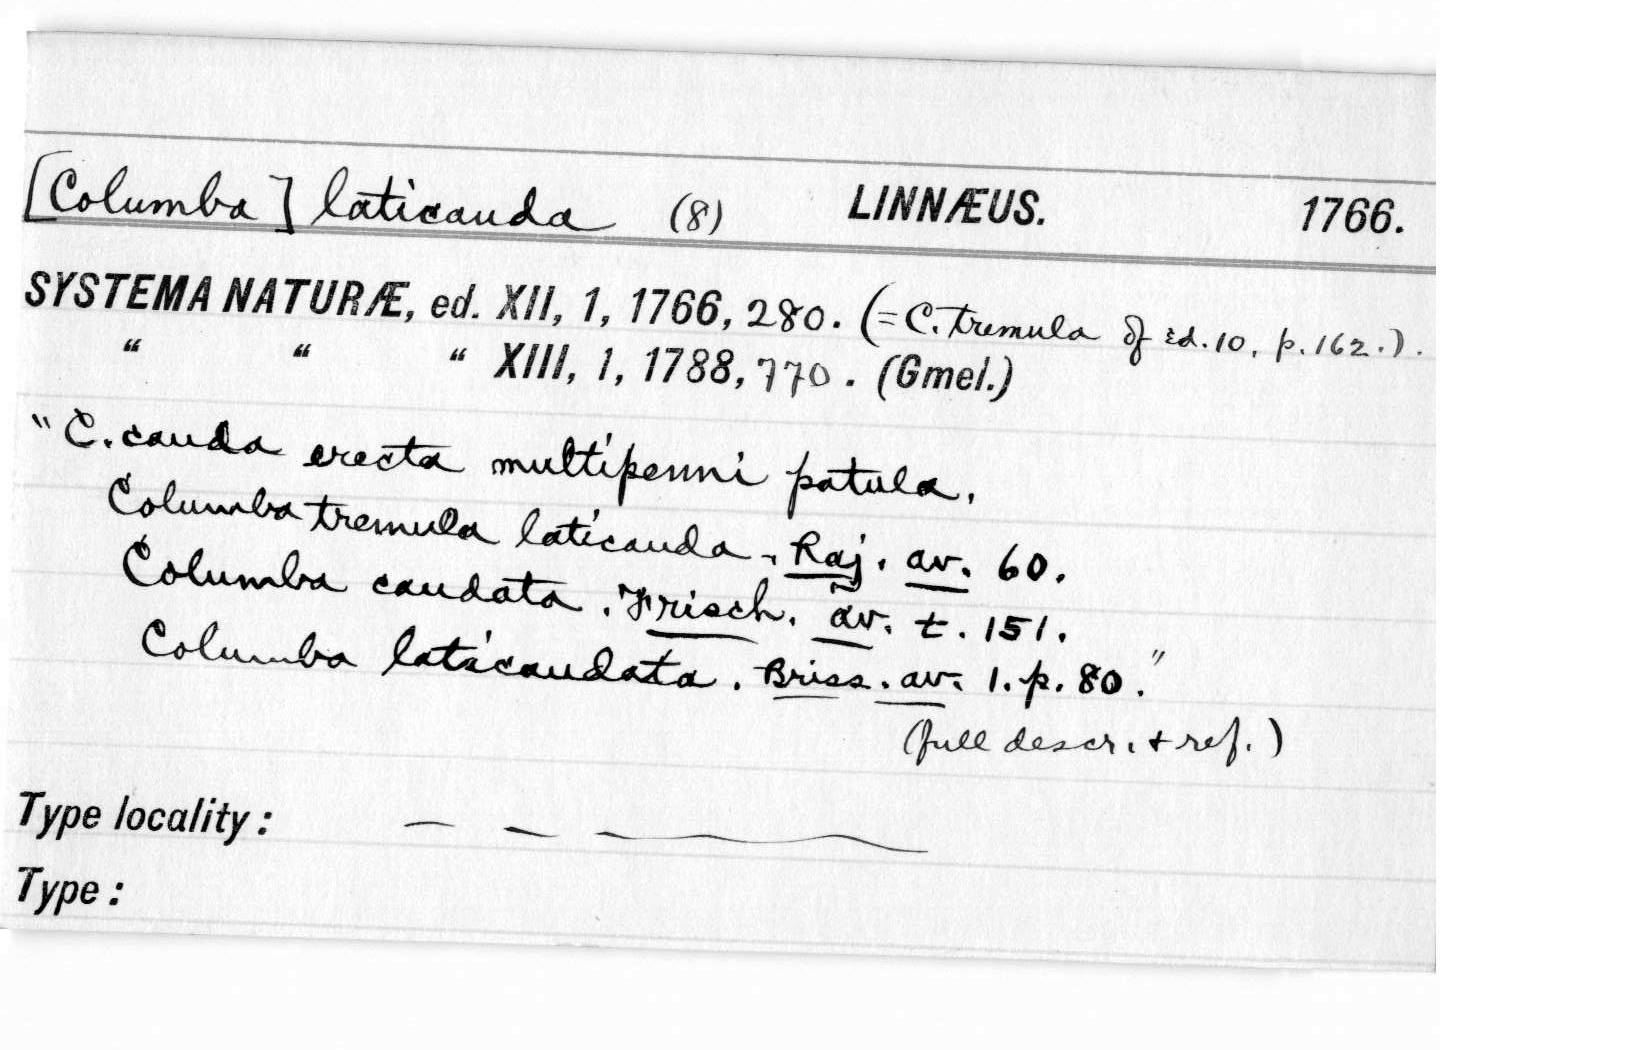 [Columba] laticauda (8) LINNÆUS. 1766.
SYSTEMA NATURÆ, ed. XII, 1, 1766, 280. (=C. tremula of Ed. 10, p. 162.).
" " " XIII, 1, 1788, 770. (Gmel.)
"C. cauda erecta multipenni patula.
Columba tremula laticauda. Raj. av. 60.
Columba caudata. Frisch. av. t. 151.
Columba laticaudata. Briss. av. 1. p. 80."
(full descr. + ref.)
Type locality:
Type: